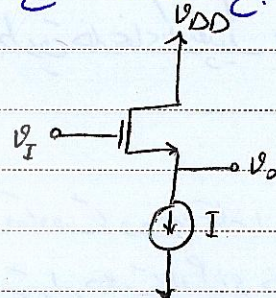 v_DD
v_I
v_o
I